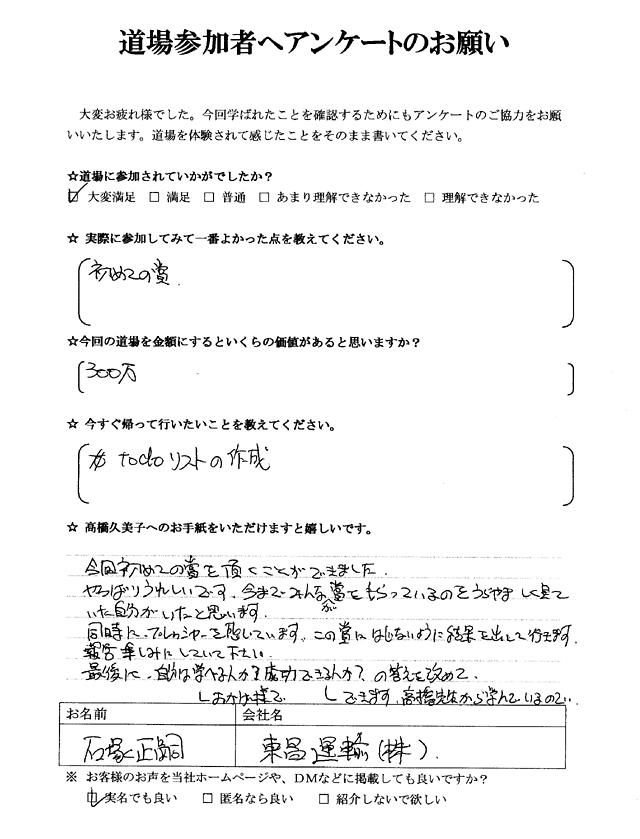 道場参加者へアンケートのお願い
大変お疲れ様でした。今回学ばれたことを確認するためにもアンケートのご協力をお願
いいたします。道場を体験されて感じたことをそのまま書いてください。
☆道場に参加されていかがでしたか？
☑ 大変満足 □ 満足 □ 普通 □ あまり理解できなかった □ 理解できなかった
☆ 実際に参加してみて一番よかった点を教えてください。
初めての賞.
☆今回の道場を金額にするといくらの価値があると思いますか？
300万
☆ 今すぐ帰って行いたいことを教えてください。
todoリストの作成
☆ 髙橋久美子へのお手紙をいただけますと嬉しいです。
今回初めての賞を頂くことができました.
やっぱりうれしいです。今までみんなが賞をもらっているのをうらやましく見て
いた自分がいたと思います.
同時に、プレッシャーを感じています。この賞にはじないように結果を出して行きます.
報告楽しみにしていて下さい.
最後に、自分は学べるんか？成功できるんか？の答えを改めて.
おかげ様で できます、高橋先生から学んでいるので..
お名前 会社名
石塚正嗣 東昌運輸(株).
※ お客様のお声を当社ホームページや、DMなどに掲載しても良いですか？
☑ 実名でも良い □ 匿名なら良い □ 紹介しないで欲しい